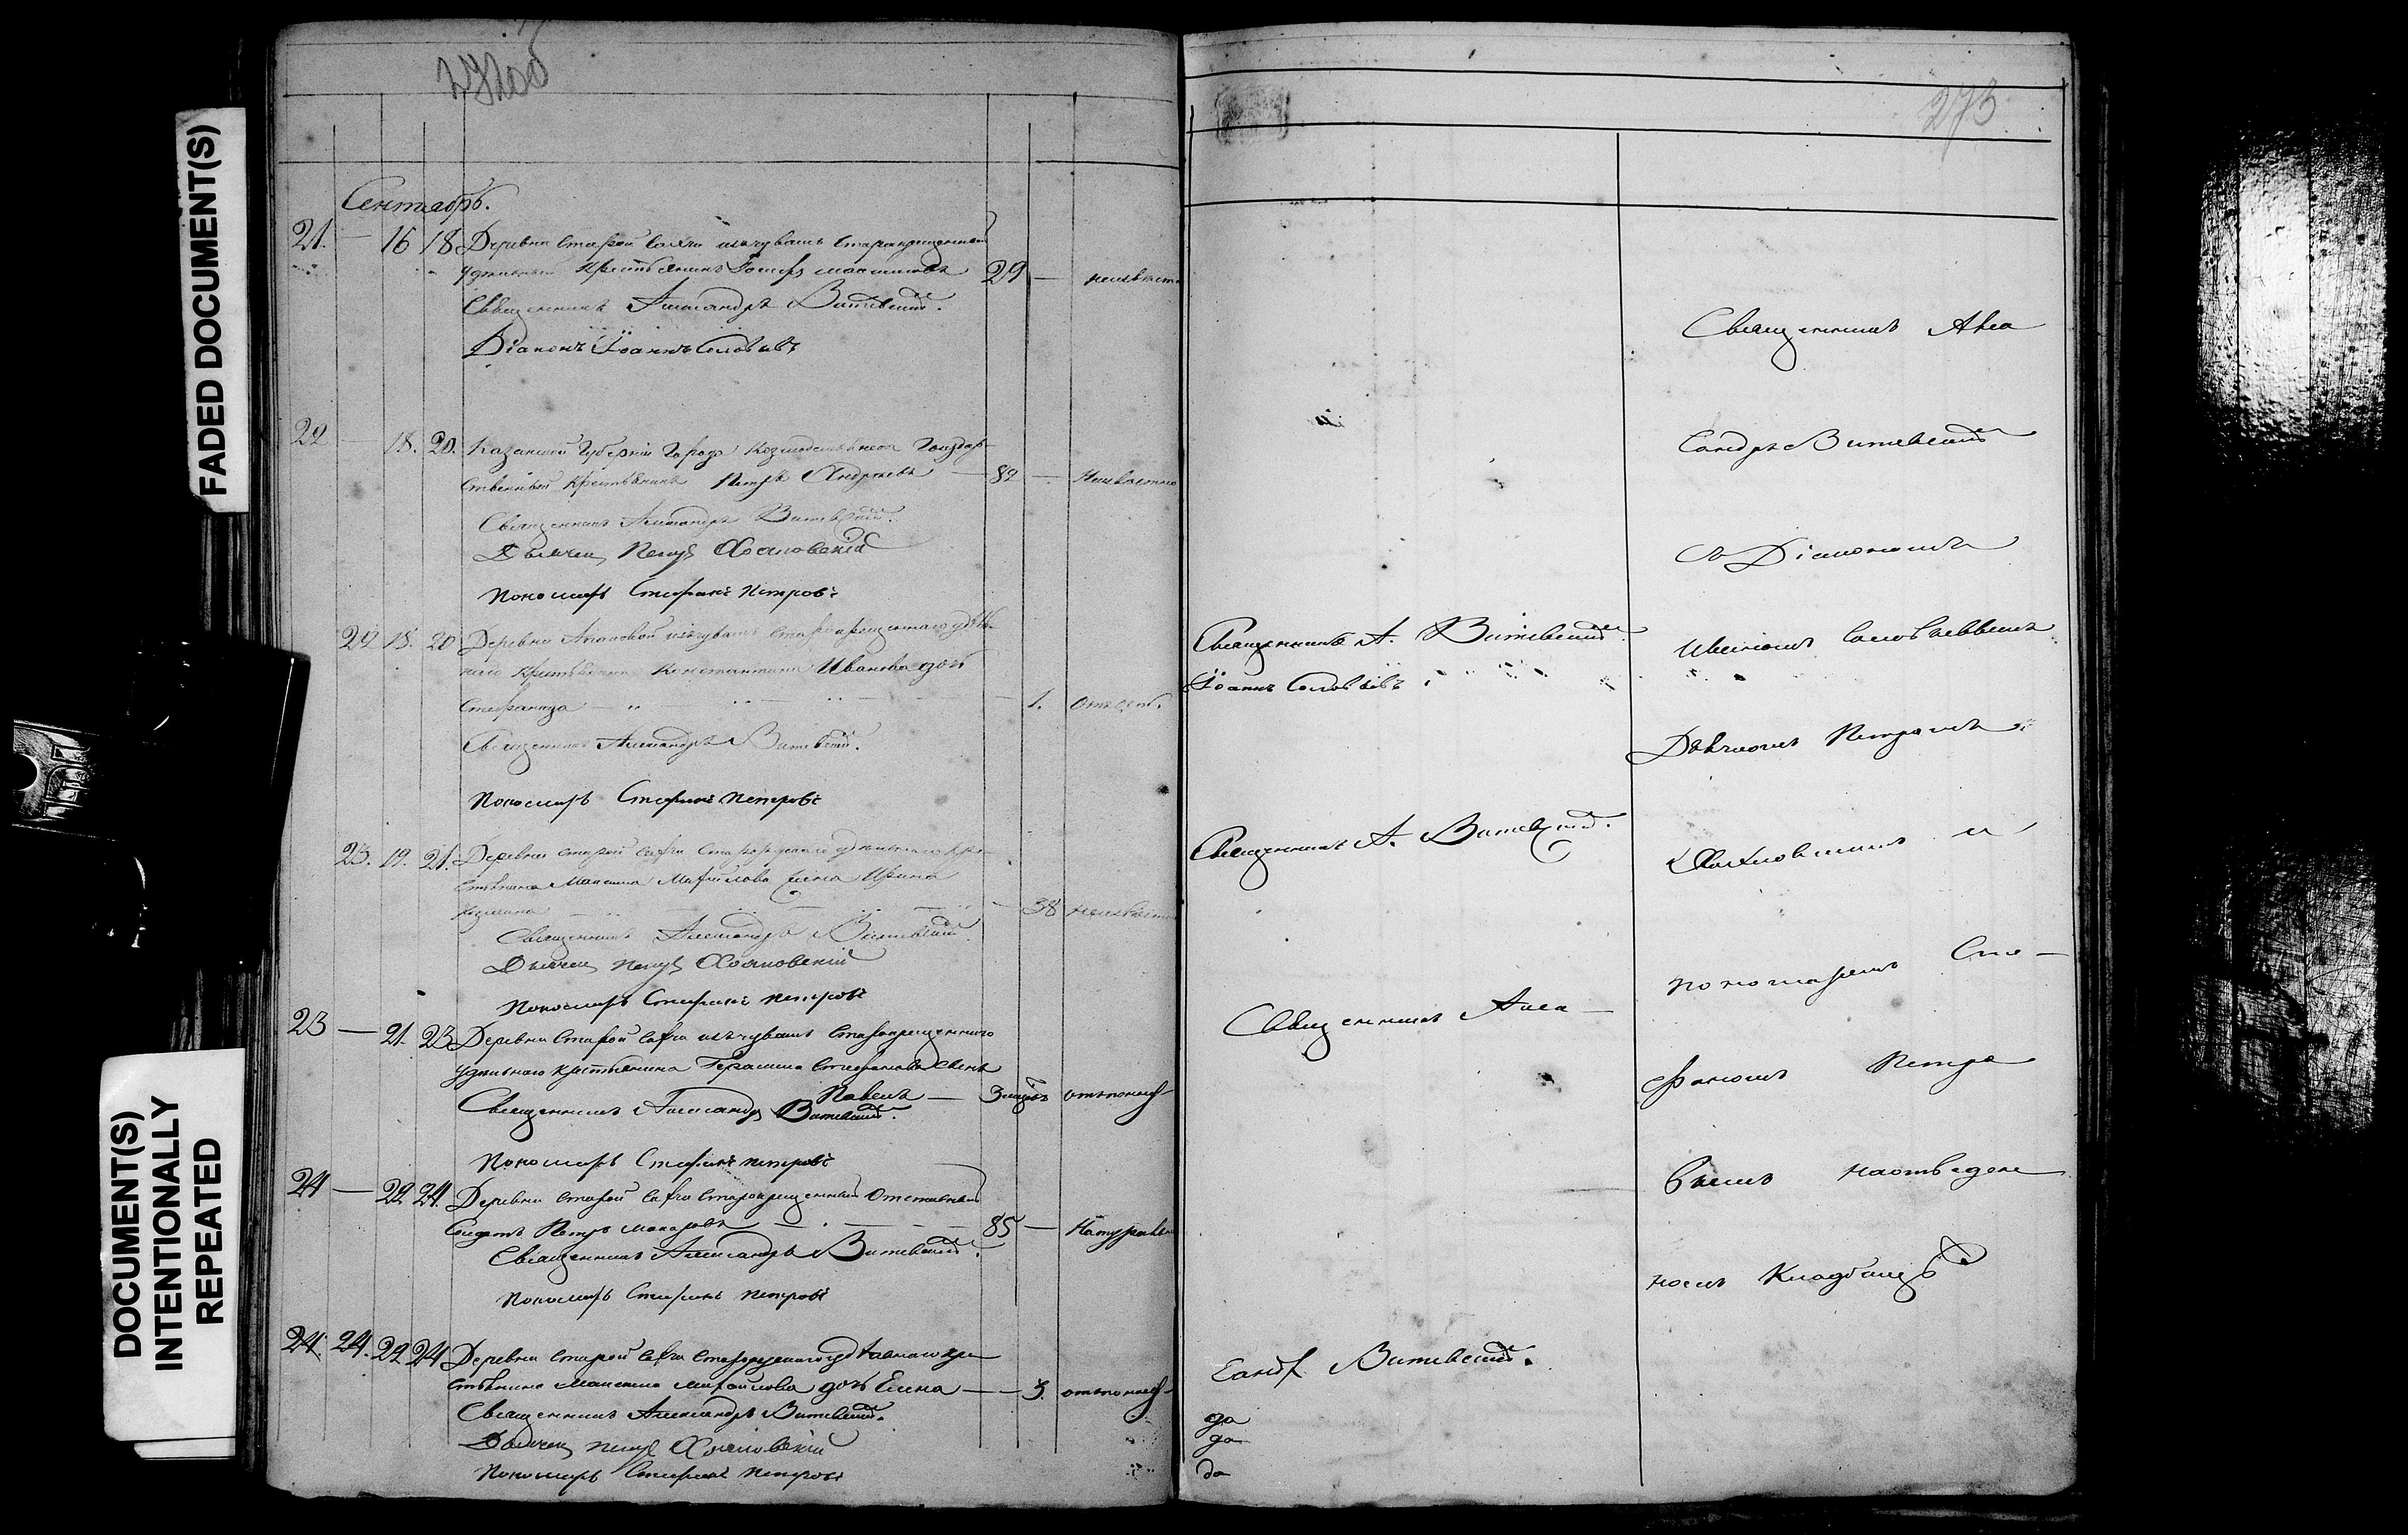 272об
273
FADED DOCUMENT(S)
DOCUMENT(S)
INTENTIONALLY
REPEATED
Сентябрь.
21. — 16 18 Деревни Старой изъ чувашъ Старокрещенный
удѣльный крестьянинъ Максимовъ 29 — неизвѣстно
Священникъ Александръ Витевскій.
Діаконъ Іоаннъ Соловьевъ
22 — 18. 20. Казанской Губерніи Города Козмодемьянска Государ-
ственный крестьянинъ Петръ Андреевъ — 82 — Неизвѣстно
Священникъ Александръ Витевскій.
Дьячекъ Петръ
Пономарь Стефанъ Петровъ
22 18. 20 Деревни изъ чувашъ Старокрещеннаго удѣль-
наго крестьянина Константина Иванова дочь
Стефанида — 1. Отъ
Священникъ Александръ Витевскій.
Пономарь Стефанъ Петровъ
23. 19. 21. Деревни Старой удѣльнаго кре-
стьянина Максима Михайлова жена Ирина
38 неизвѣстно
Священникъ Александръ Витевскій
Дьячекъ Петръ
Пономарь Стефанъ Петровъ
23 — 21. 23 Деревни Старой изъ чувашъ Старокрещеннаго
удѣльнаго крестьянина Герасима Стефанова сынъ
Павелъ — 3 отъ поноса
Священникъ Александръ Витевскій.
Пономарь Стефанъ Петровъ
24 — 22 24. Деревни Старой Старокрещенный Отставный
Солдатъ Петръ Макаровъ — 85 — Натурально
Священникъ Александръ Витевскій.
Пономарь Стефанъ Петровъ
24. 24. 22 24 Деревни Старой удѣльнаго кре-
стьянина Максима Михайлова дочь Елена — 3. отъ поноса
Священникъ Александръ Витевскій.
Дьячекъ Петръ
Пономарь Стефанъ Петровъ
Священникъ А. Витевскій
Іоаннъ Соловьевъ
Священникъ А. Витевскій.
Священникъ Алек—
сандр Витевскій.
да
да
да
Священникъ Алек
сандръ Витевскій
съ Діакономъ
Иваномъ Соловьевымъ
Дьячкомъ Петромъ
и
пономаремъ Сте—
фаномъ Петро
вымъ на отведен
номъ Кладбищѣ